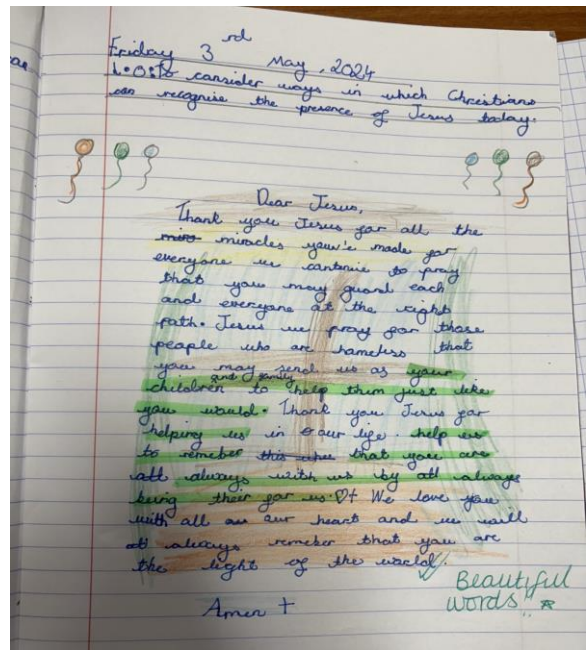 Friday 3rd May, 2024
L.O: To consider ways in which Christians
can recognise the presence of Jesus today.
Dear Jesus,
Thank you Jesus for all the
miracles you'e made for
everyone we continue to pray
that you may guard each
and everyone at the right
path. Jesus we pray for those
people who are homeless that
you may send us as your
children and family to help them just like
you would. Thank you Jesus for
helping us in our life. help us
to remeber that you are
always with us by all always
being their for us. We love you
with all our heart and we will
always remeber that you are
the light of the world.
Amen
Beautiful
words!!